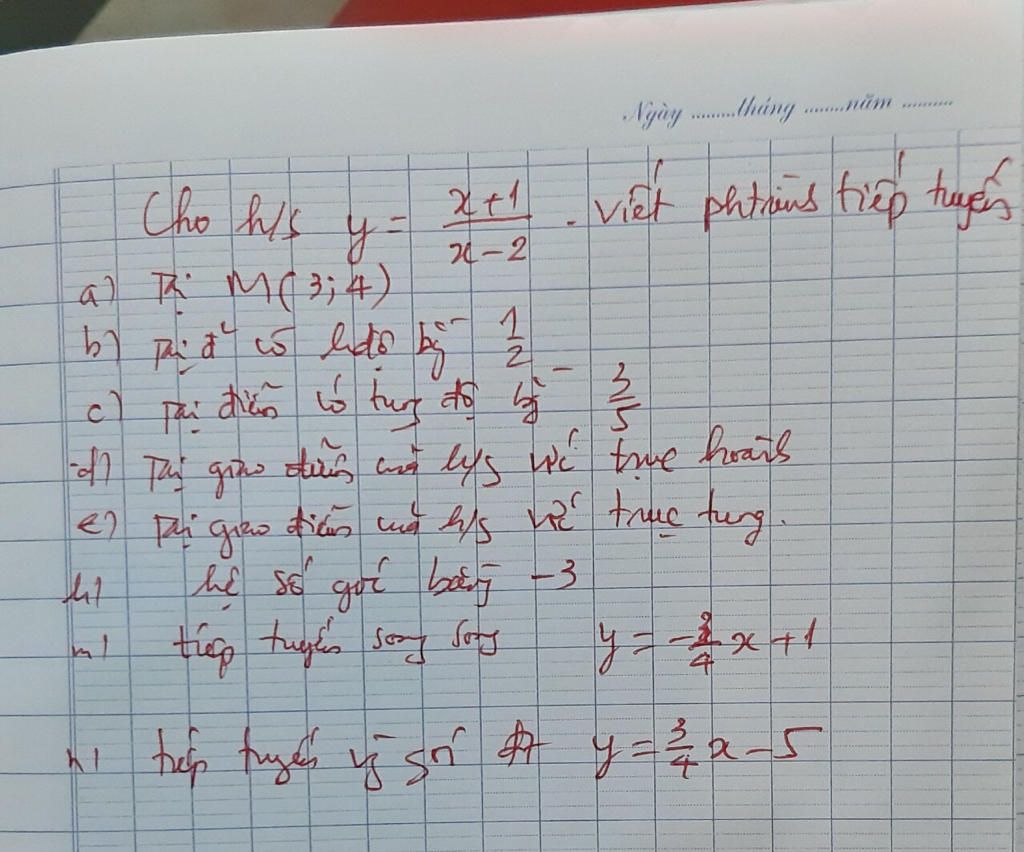 Ngày .........tháng ........năm ..........
Cho h/s y = \frac{x+1}{x-2} . viết phtrình tiếp tuyến
a) Tại M(3;4)
b) Tại đ² có hđộ bg \frac{1}{2}
c) Tại điểm có tung độ bg \frac{3}{5}
d) Tại giao điểm của h/s với trục hoành
e) Tại giao điểm của h/s với trục tung.
h) hệ số góc bằng -3
m) tiếp tuyến song song y = -\frac{3}{4}x + 1
n) tiếp tuyến góc đt y = \frac{3}{4}x - 5